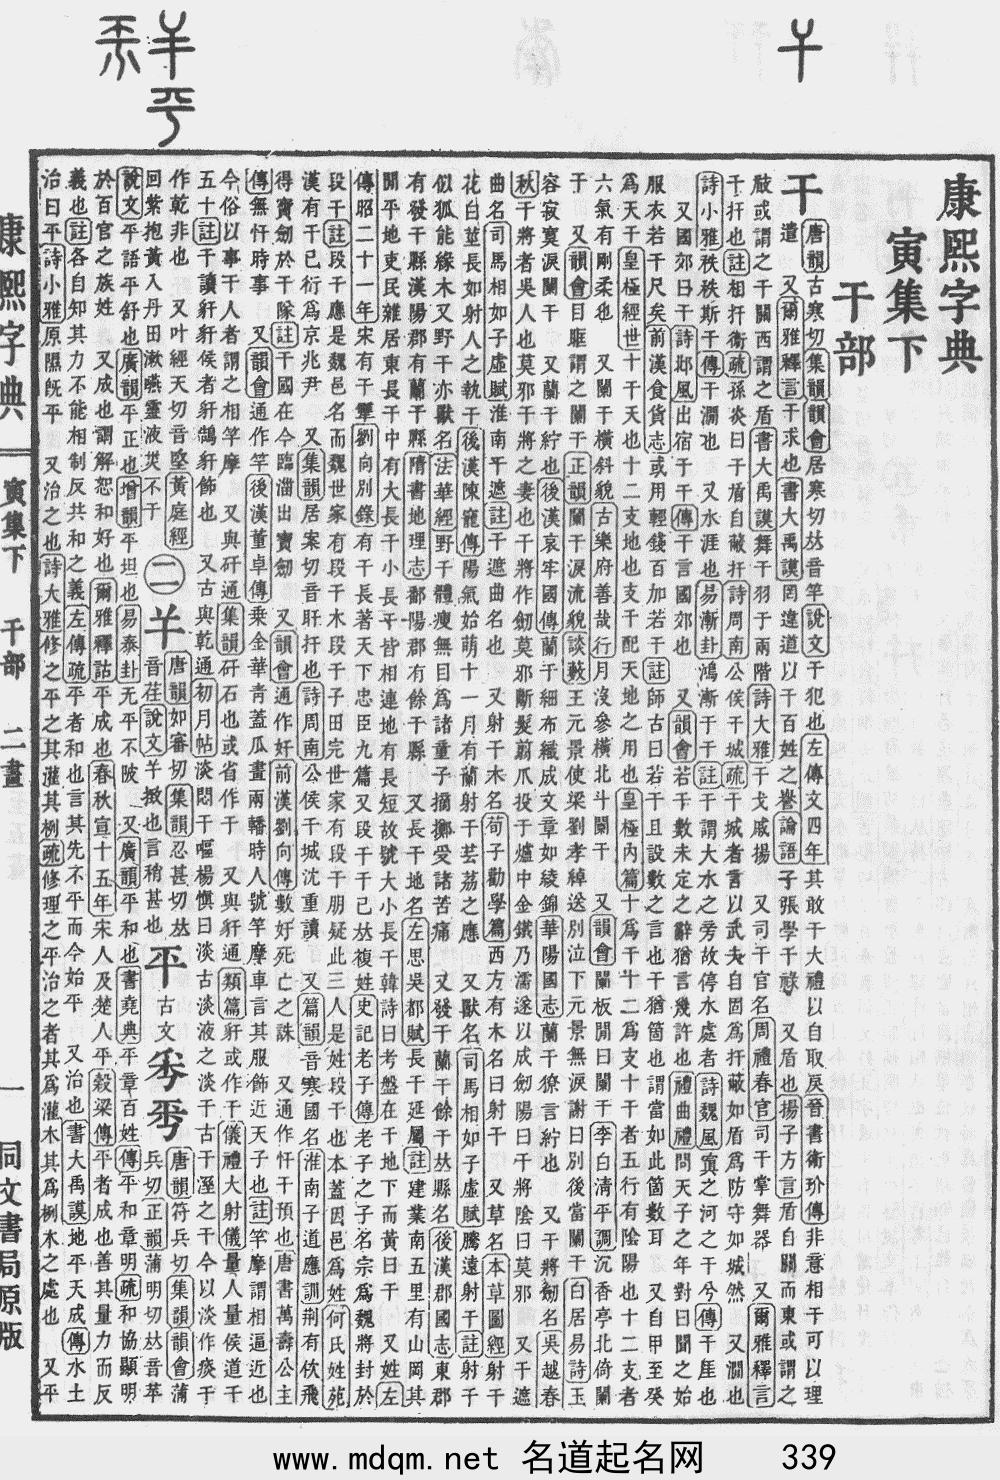 康熙字典
寅集下
干部
干 唐韻古寒切集韻韻會居寒切𠀤音竿說文干犯也左傳文四年其敢干大禮以自取戾晉書衛玠傳非意相干可以理
遣 又爾雅釋言干求也書大禹謨罔違道以干百姓之譽論語子張學干祿 又盾也揚子方言盾自關而東或謂之
瞂或謂之干關西謂之盾書大禹謨舞干羽于兩階詩大雅干戈戚揚 又司干官名周禮春官司干掌舞器 又爾雅釋言
干扞也註相扞衛疏孫炎曰干盾自蔽扞詩周南公侯干城疏干城者言以武夫自固爲扞蔽如盾爲防守如城然 又澗也
詩小雅秩秩斯干傳干澗也 又水涯也易漸卦鴻漸于干註干謂大水之旁故停水處者詩魏風寘之河之干今傳干厓也
又國郊曰干詩邶風出宿于干傳干言國郊也 又韻會若干數未定之辭猶言幾許也禮曲禮問天子之年對曰聞之始
服衣若干尺矣前漢食貨志或用輕錢百加若干註師古曰若干且設數之言也干猶箇也謂當如此箇數耳 又自甲至癸
爲天干皇極經世十干天也十二支地也支干配天地之用也皇極內篇十爲干十二爲支十干者五行有陰陽也十二支者
六氣有剛柔也 又闌干橫斜貌古樂府善哉行月沒參橫北斗闌干 又韻會闌板閒曰闌干李白淸平調沉香亭北倚闌
干 又韻會目眶謂之闌干正韻闌干淚流貌談藪王元景使梁劉孝綽送別泣下元景無淚謝曰別後當闌干白居易詩玉
容寂寞淚闌干 又蘭干紵也後漢哀牢國傳蘭干細布織成文章如綾錦華陽國志蘭干獠言紵也 又干將劒名吳越春
秋干將者吳人也莫邪干將之妻也干將作劒莫邪斷髮翦爪投于爐中金鐵乃濡遂以成劒陽曰干將陰曰莫邪 又干遮
曲名司馬相如子虛賦淮南干遮註干遮曲名也 又射干木名荀子勸學篇西方有木名曰射干 又草名本草圖經射干
花白莖長如射人之執干後漢陳寵傳陽氣始萌十一月有蘭射干芸荔之應 又獸名司馬相如子虛賦騰遠射干註射干
似狐能緣木又野干亦獸名法華經野干體瘦無目爲諸童子摘擲受諸苦痛 又發干蘭干餘干𠀤縣名後漢郡國志東郡
有發干縣漢陽郡有蘭干縣隋書地理志鄱陽郡有餘干縣 又干地名左思吳都賦長干延屬註建業南五里有山岡其
閒平地吏民雜居東長干中有大長干小長干皆相連地有長短故號大小長干韓詩曰考盤在干地下而黃曰干 又姓左
傳昭二十一年宋有干犨劉向別錄有干長著天下忠臣九篇 又段干干己𠀤複姓史記老子傳老子之子名宗爲魏將封於
段干註段干應是魏邑名而魏世家有段干木段干子田完世家有段干朋疑此三人是姓段干也本蓋因邑爲姓何氏姓苑
漢有干已衍爲京兆尹 又集韻居案切音旰扞也詩周南公侯干城沈重讀 又篇韻音寒國名淮南子道應訓荆有佽飛
得寶劒於干隊註干國在今臨淄出寶劒 又韻會通作奸前漢劉向傳數奸死亡之誅 又通作忓干預也唐書萬壽公主
傳無忓時事 又韻會通作竿後漢董卓傳乗金華靑蓋瓜畫兩轓時人號竿摩車言其服飾近天子也註竿摩謂相逼近也
今俗以事干人者謂之相竿摩 又與矸通集韻矸石也或省作干 又與豻通類篇豻或作干儀禮大射儀量人量侯道干
五十註干讀豻豻侯者豻鵠豻飾也 又古與乾通初月帖淡悶干嘔楊愼曰淡古淡液之淡干古干溼之干今以淡作痰干
作乾非也 又叶經天切音堅黃庭經
回紫抱黃入丹田漱嚥靈液災不干
二 𢆉 唐韻如審切集韻忍甚切𠀤音荏說文𢆉撠也言稍甚也
平 古文𠀥𠀤 唐韻符兵切集韻韻會蒲兵切正韻蒲明切𠀤音苹
說文平語平舒也廣韻平正也增韻平坦也易泰卦无平不陂 又廣韻平和也書堯典平章百姓傳平和章明疏和協顯明
於百官之族姓 又成也謂解恕和好也爾雅釋詁平成也春秋宣十五年宋人及楚人平穀梁傳平者成也善其量力而反
義也註各自知其力不能相制反共和之義左傳疏平者和也言其先不平而今始平 又治也書大禹謨地平天成傳水土
治曰平詩小雅原隰旣平 又治之也詩大雅修之平之其灌其栵疏修理之平治之者其爲灌木其爲栵木之處也 又平
康熙字典
寅集下 干部 二畫
一
同文書局原版
www.mdqm.net 名道起名网 339